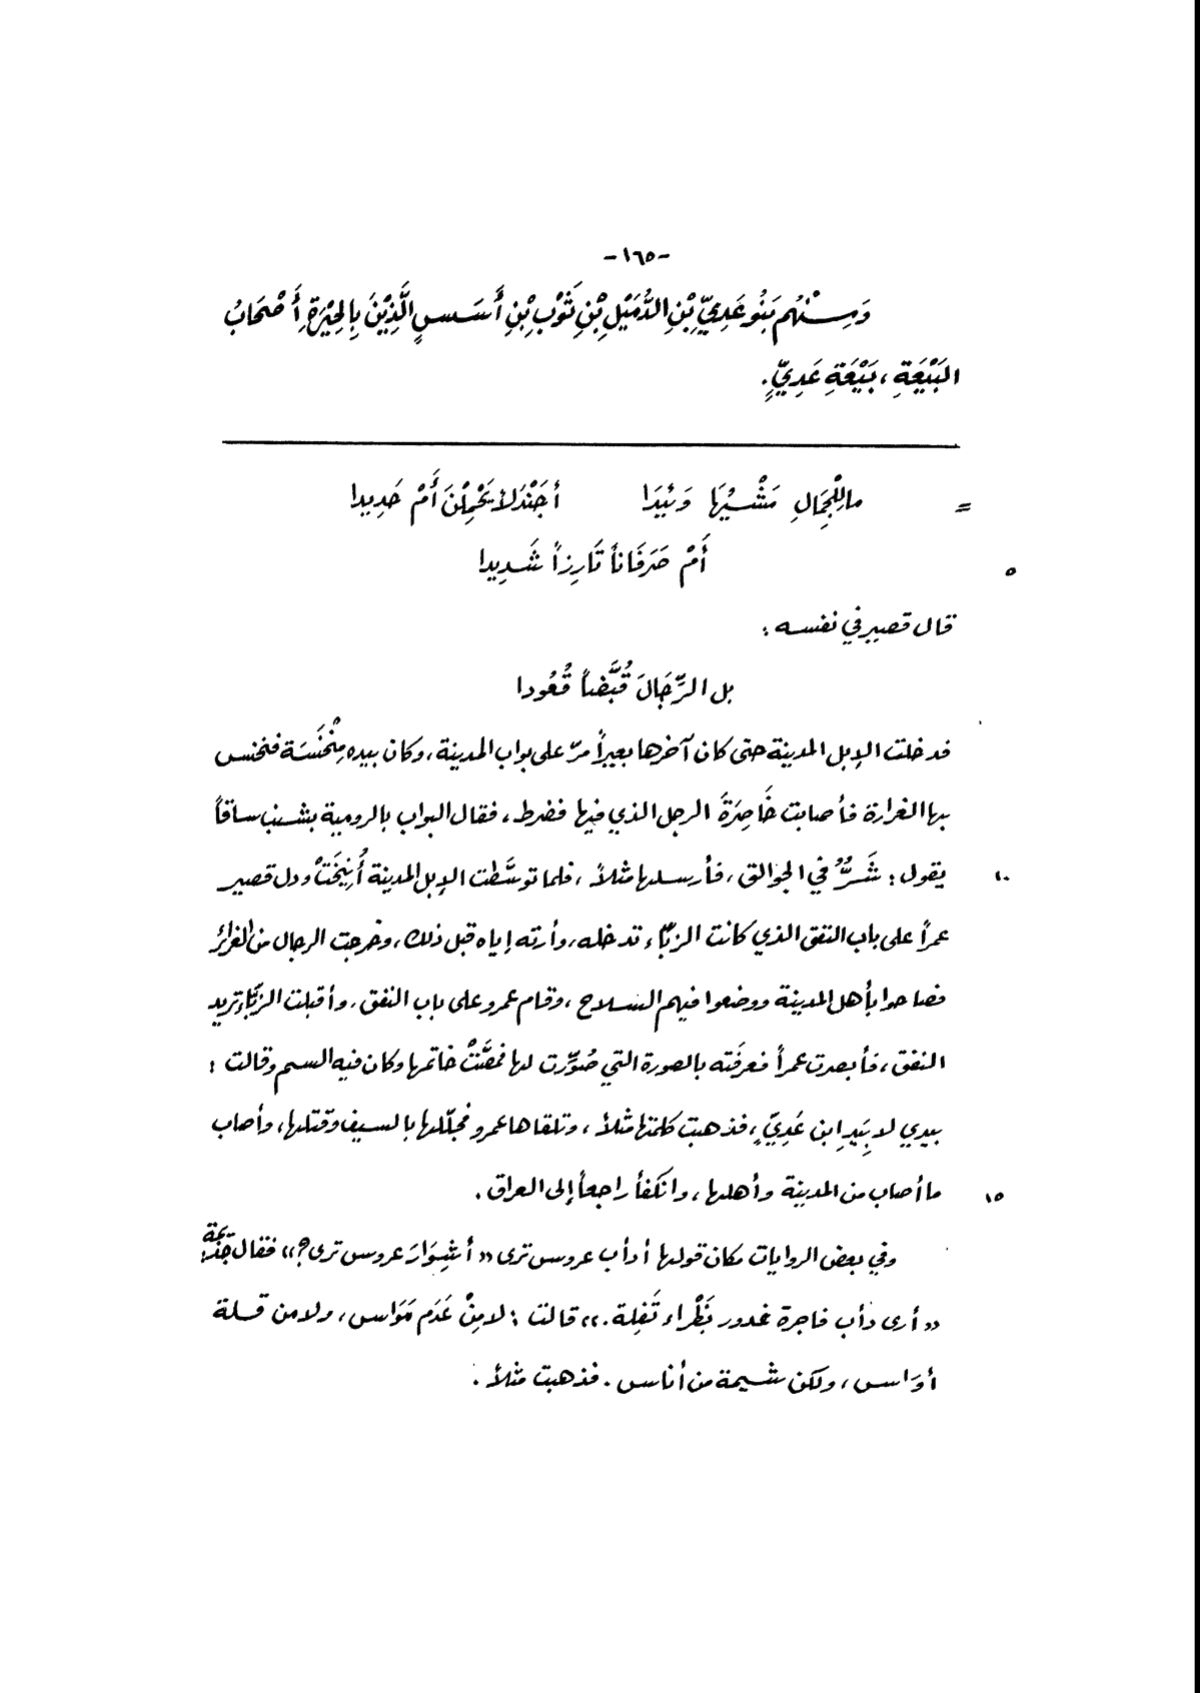 -١٦٥-
وَمِنْهُم بَنُو عَدِيِّ بْنِ الدُّمَيْلِ بْنِ ثَوْبِ بْنِ أَسَسٍ الَّذِيْنَ بِالحِيْرَةِ أَصْحَابُ
البَيْعَةِ ، بَيْعَةِ عَدِيٍّ .
= ما لِلْجِمَالِ مَشْيُهَا وَئِيْدَا أَجَنْدَلاً يَحْمِلْنَ أَمْ حَدِيدا
٥ أَمْ صَرَفَاناً تَارِزاً شَدِيدا
قال قصير في نفسه :
بل الرِّجَالَ قُبَّضاً قُعُودا
فدخلت الإبل المدينة حتى كان آخرها بعيراً مرّ على بواب المدينة ، وكان بيده مِنْخَسَة فنخس
بها الغرارة فأصابت خَاصِرَةَ الرجل الذي فيها فضرط ، فقال البواب بالرومية بشنب ساقاً
١٠ يقول : شَرٌّ في الجوالق ، فأرسلها مثلاً ، فلما توسَّطت الإبل المدينة أُنِيْخَتْ ودل قصير
عمراً على باب النفق الذي كانت الزبّاء تدخله ، وأرته إياه قبل ذلك ، وخرجت الرجال من الغرائر
فصاحوا بأهل المدينة ووضعوا فيهم السلاح ، وقام عمرو على باب النفق ، وأقبلت الزبّاء تريد
النفق ، فأبصرت عمراً فعرفَته بالصورة التي صُوِّرت لها فمصَّتْ خاتمها وكان فيه السم وقالت :
بيدي لا بِيَدِ ابن عَدِيٍّ ، فذهبت كلمتها مثلاً ، وتلقاها عمرو فجلّلها بالسيف وقتلها ، وأصاب
١٥ ما أصاب من المدينة وأهلها ، وانكفأ راجعاً إلى العراق .
وفي بعض الروايات مكان قولها أدأب عروس ترى « أشِوَارَ عروس ترى ؟ » فقال جَذيمة :
« أرى دأب فاجرة غدور بَظْراء تَفِلة . » قالت : لا مِنْ عَدَم مَوَاس ، ولا من قلة
أوَاس ، ولكن شيمة من أناس . فذهبت مثلاً .